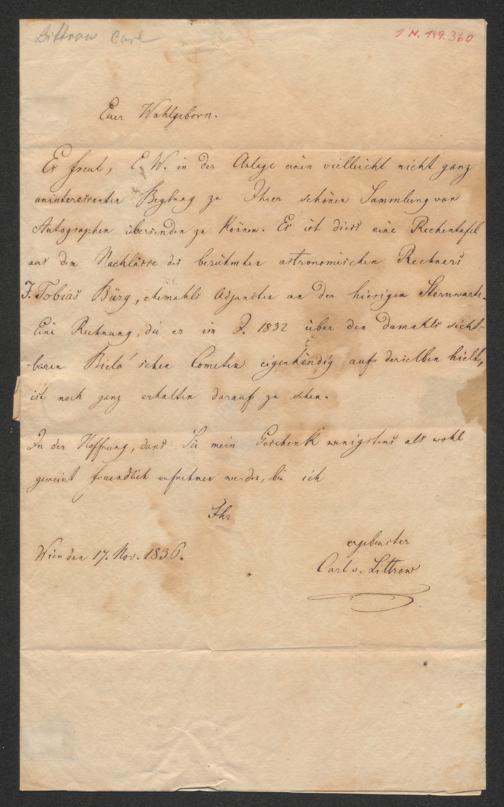 Littrow Carl
I.N. 149.360
Euer Wohlgeborn.
Es freut, E. W. in der Anlage einen vielleicht nicht ganz
uninteressanten Beytrag zu Ihrer schönen Sammlung von
Autographen übersenden zu können. Es ist diess eine Rechentafel
aus dem Nachlasse des berühmten astronomischen Rechners
J. Tobias Bürg, ehemals Adjuncten an der hiesigen Sternwarte.
Eine Rechnung, die er im J. 1832 über den damahls sicht-
-baren Biela'schen Cometen eigenhändig auf derselben hielt,
ist noch ganz erhalten darauf zu sehen.
In der Hoffnung, dass Sie mein Geschenk wenigstens als wohl
gemeint freundlich aufnehmen werden, bin ich
Ihr
ergebenster
Wien den 17. Nov. 1836.
Carl v. Littrow